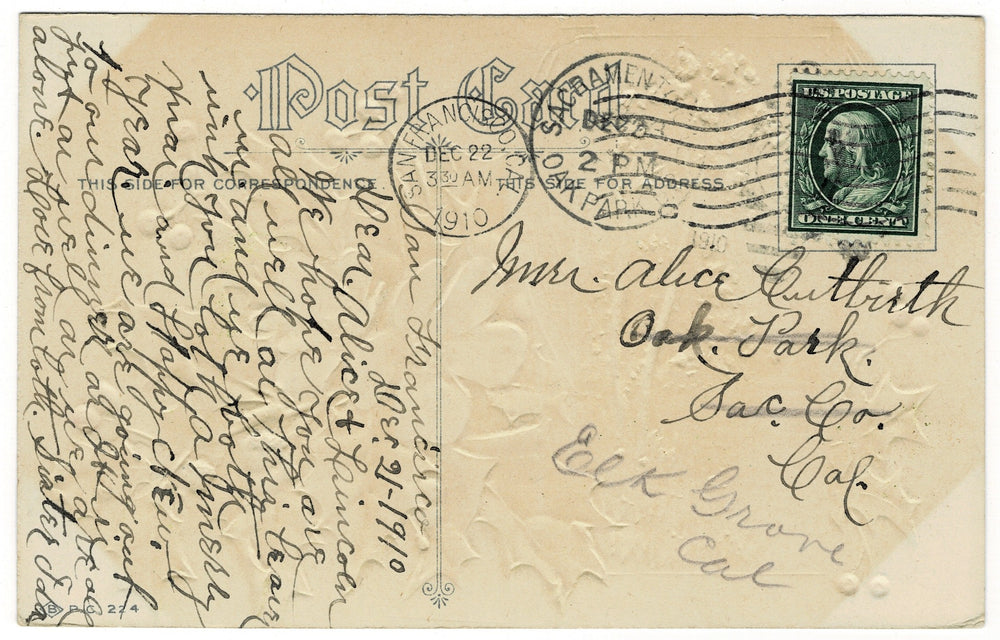 Post Card
THIS SIDE FOR CORRESPONDENCE
THIS SIDE FOR ADDRESS
SAN FRANCISCO, CAL.
DEC 22
3 30 AM
1910
SACRAMENTO
DEC
2 PM
OAK PARK
1910
U.S. POSTAGE
ONE CENT
Mrs. Alice Cutbirth
Oak. Park.
Sac. Co.
Cal.
Elk Grove
Cal
San Francisco
Dec 21-1910
Dear Alice & Lincoln
We hope you are
all well as this leaves
us and we both
wish you both a Merry
Xmas and Happy New
Year. We are going out
to our dinner at
just as well as we are all
alone. Love from both. Sister Ida
B P.C. 224